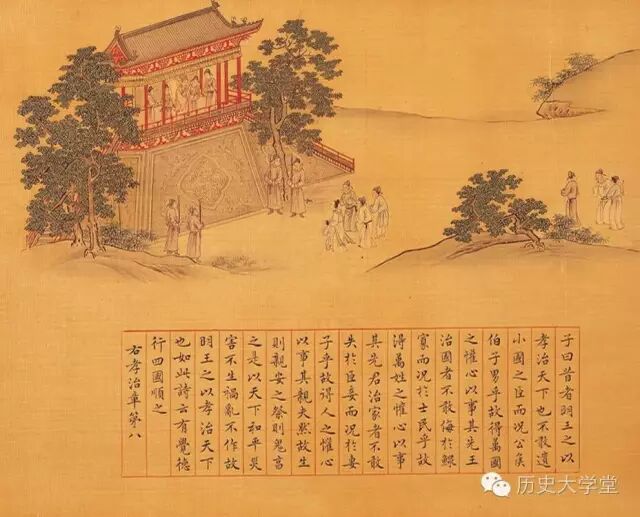 子曰昔者明王之以
孝治天下也不敢遺
小國之臣而況公侯
伯子男乎故得萬國
之懽心以事其先王
治國者不敢侮於鰥
寡而況於士民乎故
得萬姓之懽心以事
其先君治家者不敢
失於臣妾而況於妻
子乎故得人之懽心
以事其親夫然故生
則親安之祭則鬼享
之是以天下和平災
害不生禍亂不作故
明王之以孝治天下
也如此詩云有覺德
行四國順之
右孝治章第八
历史大学堂